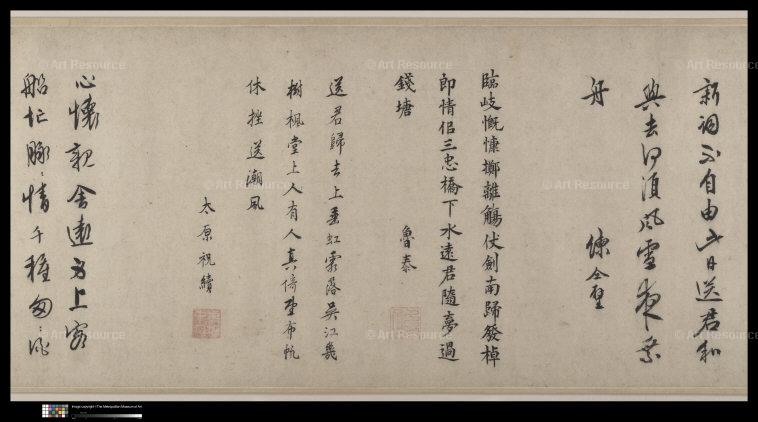 新詞不自由此日送君和
興去何須風雪夜乘
舟
臨岐慨慷擲離觴仗劍南歸發棹
即情侶三忠橋下水遠君隨夢過
錢塘 魯泰
送君歸去上垂虹霜落吳江幾
樹楓堂上人有人真倚望布帆
休挫送潮風
太原祝續
心懷親舍遠 上客
船忙脉脉情千種匆匆
© Art Resource
© Art Resource
© Art Resource
© Art Resource
© Art Resource
© Art Resource
Image copyright ©The Metropolitan Museum of Art